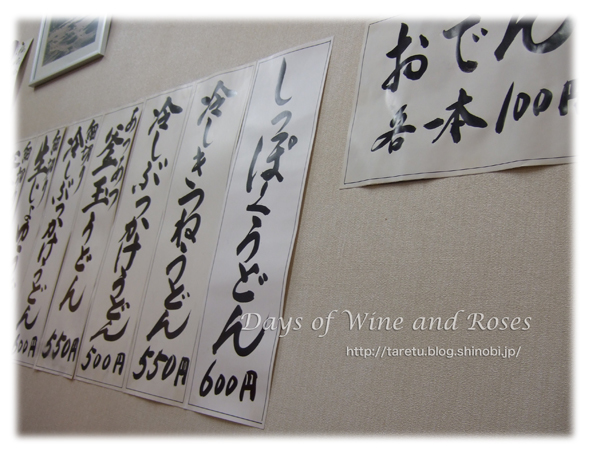 おでん
各一本 100円
しっぽくうどん 600円
冷しきつねうどん 550円
冷しぶっかけうどん 500円
あつあつ
釜玉うどん 550円
冷しぶっかけうどん 600円
生じょうゆ
Days of Wine and Roses
http://taretu.blog.shinobi.jp/